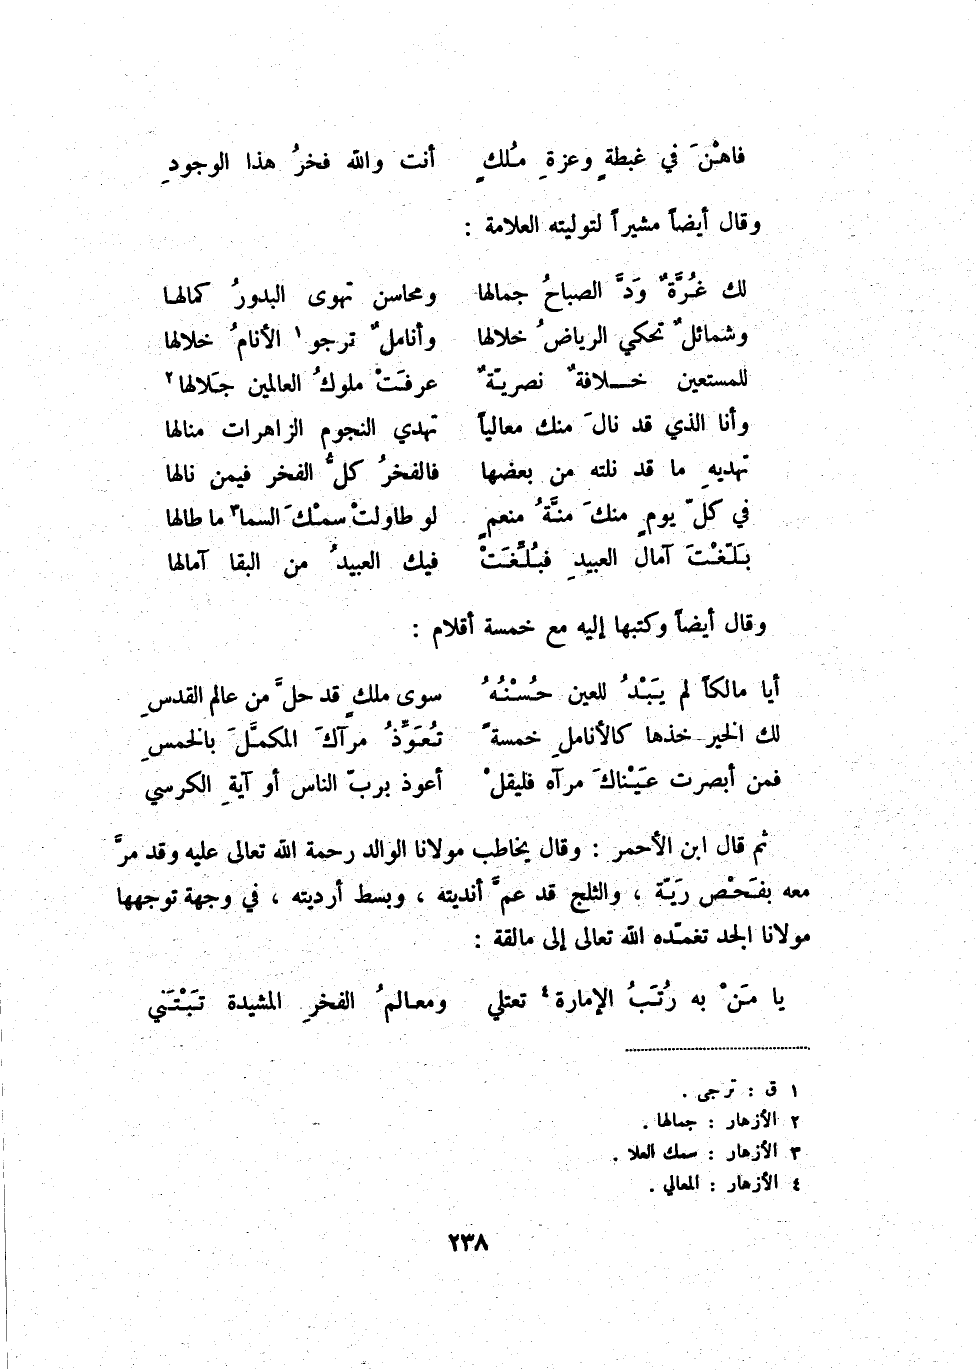 فاهْنَ في غبطةٍ وعزةِ مُلكٍ أنت والله فخرُ هذا الوجودِ
وقال أيضاً مشيراً لتوليته العلامة :
لك غُرَّةٌ وَدَّ الصباحُ جمالها ومحاسن تهوى البدورُ كمالها
وشمائلٌ تحكي الرياضُ خلالها وأناملٌ ترجو١ الأنامُ خلالها
للمستعين خلافةٌ نصريّةٌ عرفَتْ ملوكُ العالمين جَلالها٢
وأنا الذي قد نالَ منك معالياً تهدي النجوم الزاهرات منالها
تهديهِ ما قد نلته من بعضها فالفخرُ كلُّ الفخر فيمن نالها
في كلّ يومٍ منكَ منَّةُ منعمٍ لو طاولتْ سمْكَ السما٣ ما طالها
بَلّغْتَ آمال العبيدِ فبُلِّغَتْ فيك العبيدُ من البقا آمالها
وقال أيضاً وكتبها إليه مع خمسة أقلام :
أيا مالكاً لم يَبْدُ للعين حُسْنُهُ سوى ملكٍ قد حلَّ من عالم القدسِ
لك الخير خذها كالأناملِ خمسةً تُعَوِّذُ مرآكَ المكمَّلَ بالخمسِ
فمن أبصرت عَيْناكَ مرآه فليقلْ أعوذ بربّ الناس أو آيةِ الكرسي
ثم قال ابن الأحمر : وقال يخاطب مولانا الوالد رحمة الله تعالى عليه وقد مرَّ
معه بفَحْص رَيّة ، والثلج قد عمَّ أنديته ، وبسط أرديته ، في وجهة توجهها
مولانا الجد تغمّده الله تعالى إلى مالقة :
يا مَنْ به رُتَبُ الإمارة٤ تعتلي ومعالمُ الفخرِ المشيدة تَبْتَني
١ ق : ترجى .
٢ الأزهار : جمالها .
٣ الأزهار : سمك العلا .
٤ الأزهار : المعالي .
٢٣٨